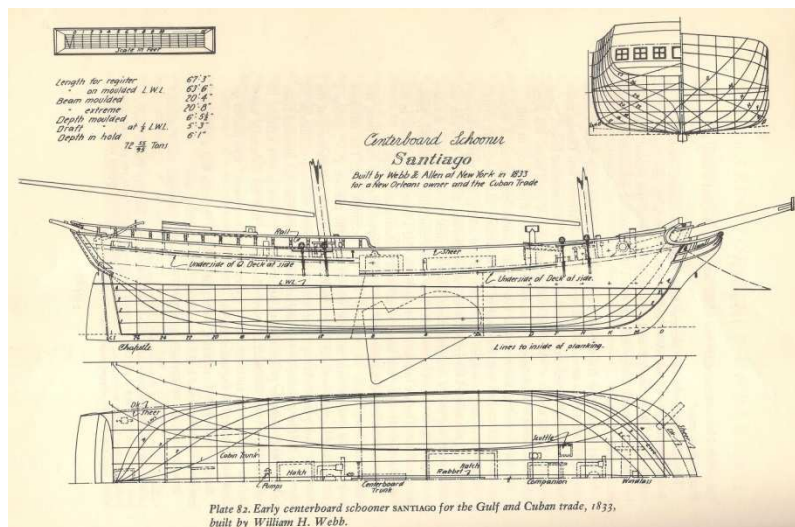 Scale in Feet
Length for register 67'-3"
" on moulded L.W.L. 63'-6"
Beam moulded 20'-4"
" extreme 20'-8"
Depth moulded 6'-5½"
Draft " at ½ L.W.L. 5'-3"
Depth in hold 6'-1"
Tons
Centerboard Schooner
Santiago
Built by Webb & Allen at New York in 1833
for a New Orleans owner and the Cuban Trade
Rail
Sheer
Underside of Deck at side
Underside of Deck at side.
L.W.L.
Chapelle
Lines to inside of planking.
Sheer
Cabin Trunk
Hatch
Pumps
Centerboard
Trunk
Hatch
Rabbet
Scuttle
Companion
Windlass
Plate 82. Early centerboard schooner SANTIAGO for the Gulf and Cuban trade, 1833,
built by William H. Webb.